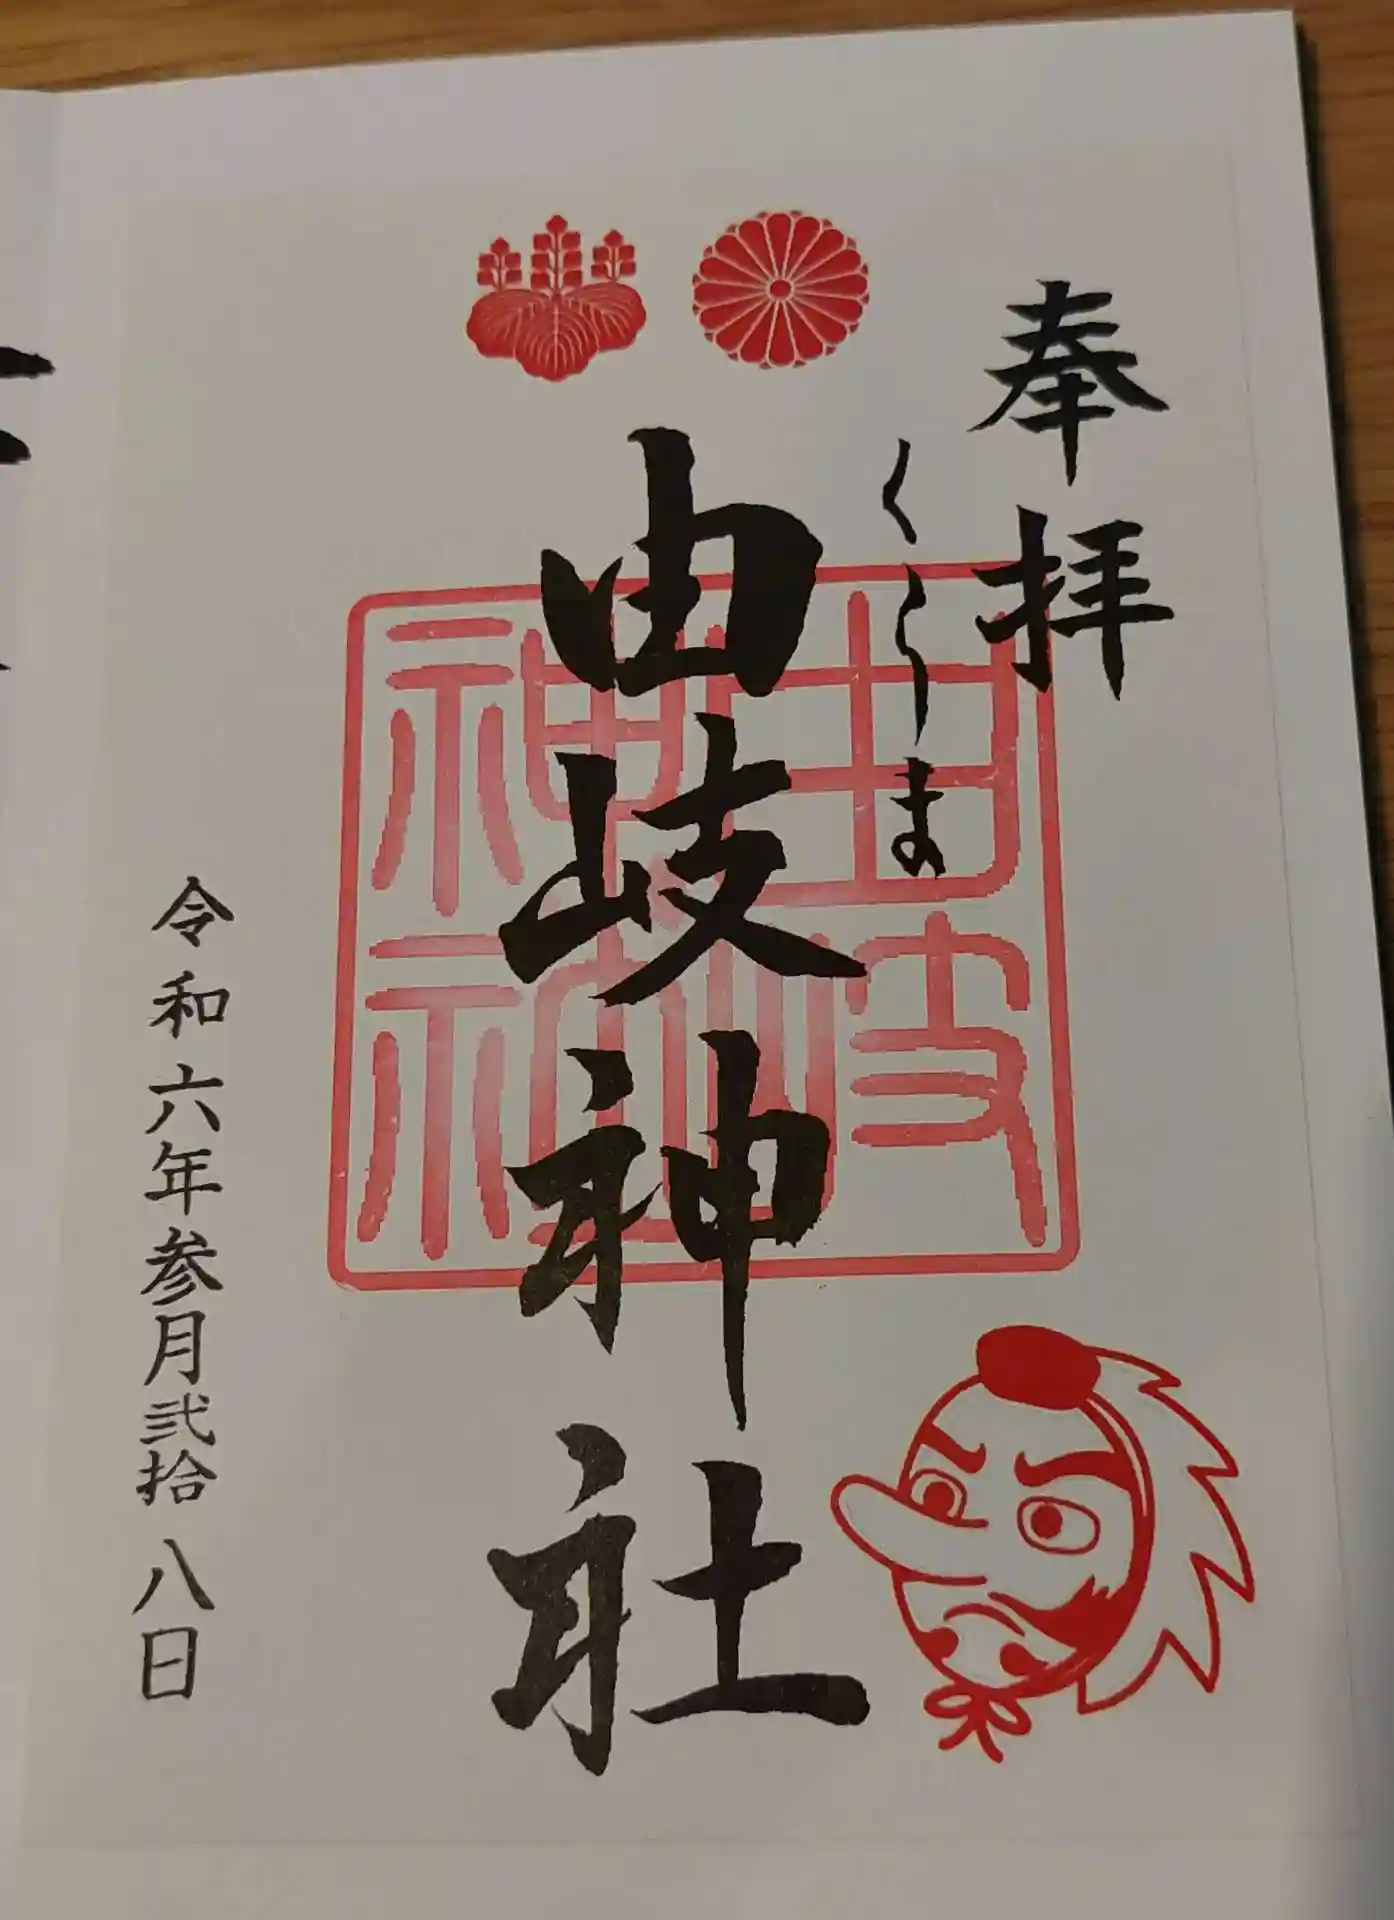 奉拝
くらま
由岐神社
由岐神社
令和六年参月弐拾八日